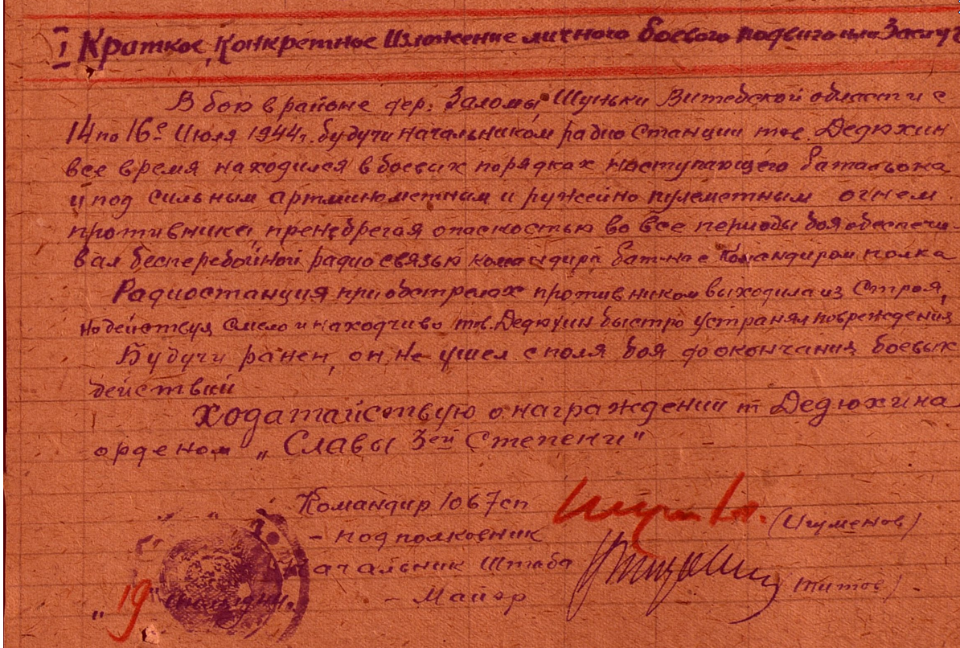 I Краткое, Конкретное Изложение личного боевого подвига или Заслуг
В бою в районе дер. Заломы Шуньки Витебской области с
14 по 16е Июля 1944г. будучи начальником радио станции тов. Дедюхин
все время находился в боевых порядках наступающего батальона
и под сильным артминометным и ружейно пулеметным огнем
противника, пренебрегая опасностью во все периоды боя обеспечи-
вал бесперебойной радиосвязью командира бат-на с Командиром полка
Радиостанция при обстрелах противником выходила из Строя,
но действуя смело и находчиво тов. Дедюхин быстро устранял повреждения
Будучи ранен, он, не ушел с поля боя до окончания боевых
действий
Ходатайствую о награждений т Дедюхина
орденом „Славы 3ей Степени"
Командир 1067сп
- подполковник (Игуменов)
Начальник Штаба
- Майор (Титов)
„19"